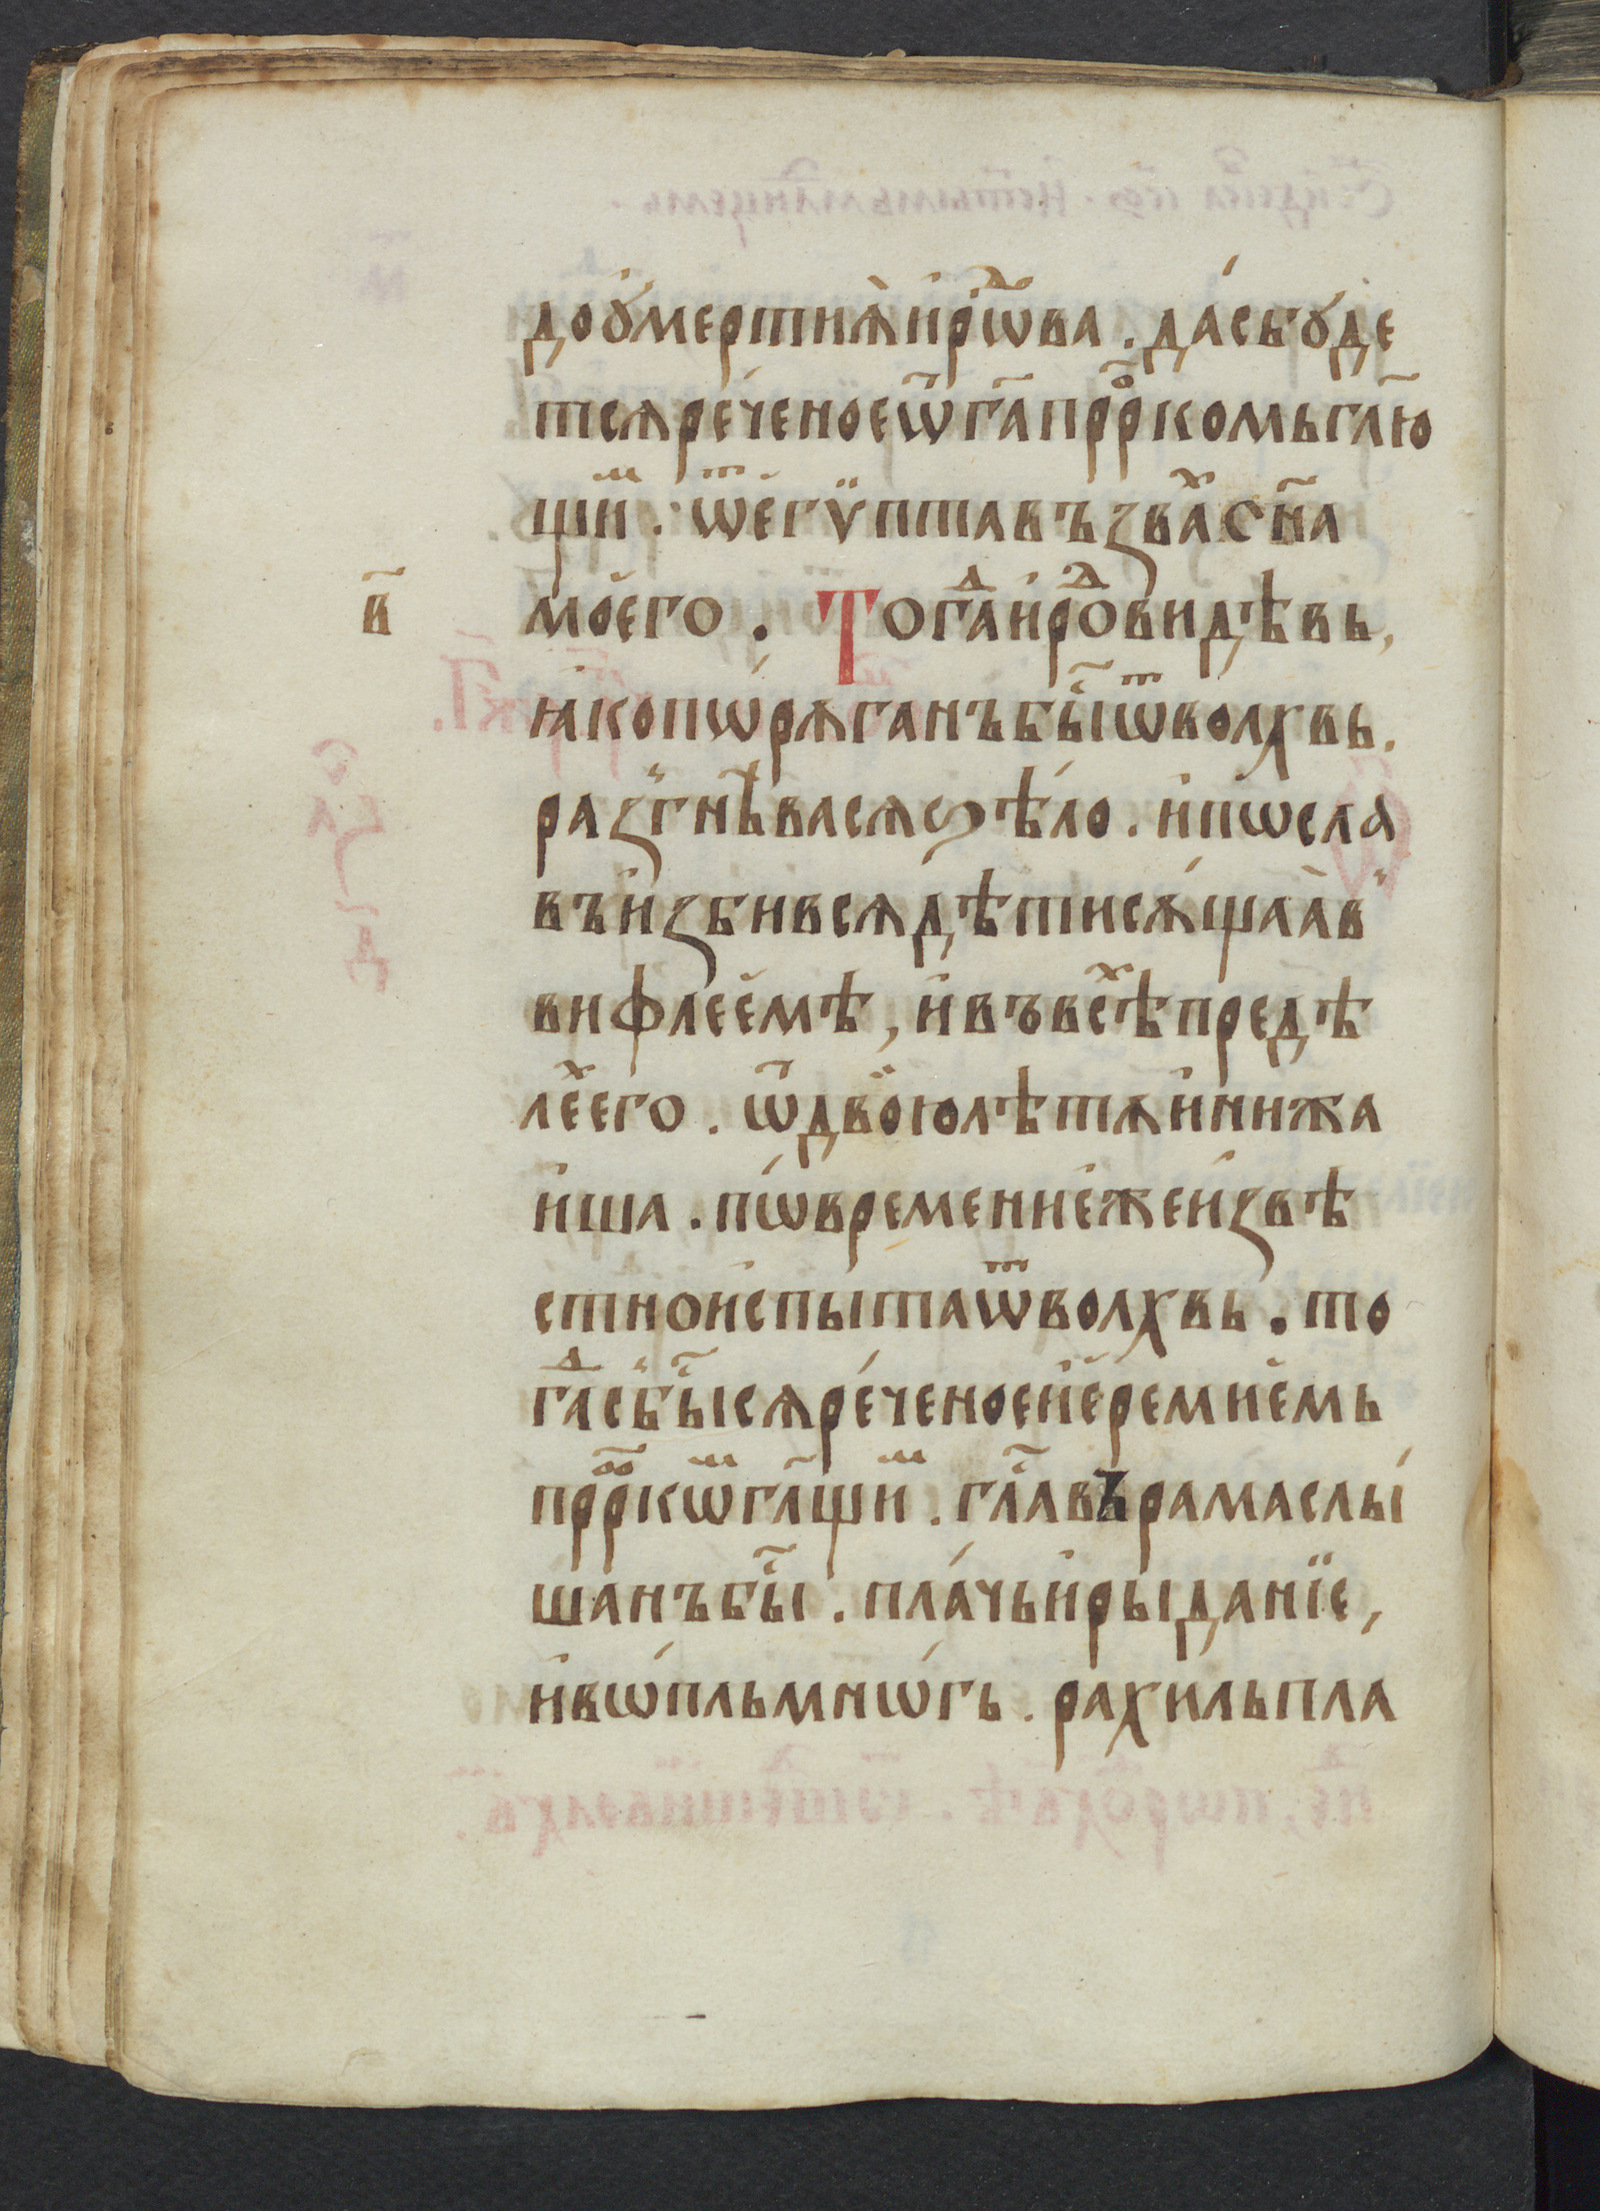 доꙋмертиѧ̀и҆рⷣѡ҃ва . да́сбꙋ́де
тсѧре́ченоеѿг҃апрⷪ҇ркомьгл҃ю
щⷲи . ѿе҆гѵ̈птавъꙁвⷯас҃на
в҃
мо҆его . Тогⷣаи҆рⷣовидѣвь,
ꙗкопѡрѧганъбы҇ѿволхвь.
раꙁгнѣ́васѧѕѣ́ло . и҆пѡсла
въи҆ꙁбивсѧдѣтисѧ́щаа҆в
вифлее҆мѣ , и҆въвсⷯѣпредѣ
лⷯеего . ѿдво҆юлѣтѧи҆нижа
и҆ша . пѡ́времение҆жеи҆ꙁвѣ
стнои҆спытаѿволхвь . то
гⷣасбы҇сѧре́ченоеи҆е҆ремие҆мь
прⷪ҇ркⷨѡгл҃щⷲи . гл҇авърамаслы́
шанъбы҇ . пла́чьи҆рыданїе ,
и҆вѡ́пльмнѡ́гь . рахильпла